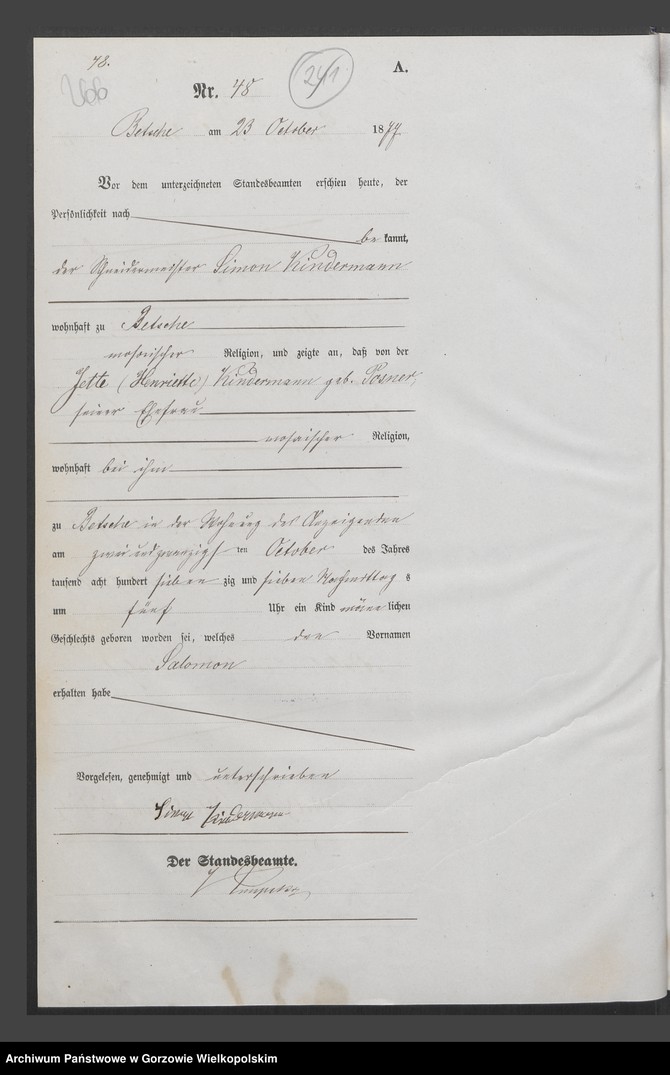 48.
A.
Nr. 48
241
Betsche am 23 October 1877
Vor dem unterzeichneten Standesbeamten erschien heute, der
Persönlichkeit nach
be kannt,
der Schneidermeister Simon Kindermann
wohnhaft zu Betsche
mosaischer Religion, und zeigte an, daß von der
Jette (Henriette) Kindermann geb. Posner,
seiner Ehefrau
mosaischer Religion,
wohnhaft bei ihm
zu Betsche in der Wohnung des Anzeigenden
am zwei und zwanzigs ten October des Jahres
tausend acht hundert sieben zig und sieben Nachmittag s
um fünf Uhr ein Kind männ lichen
Geschlechts geboren worden sei, welches den Vornamen
Salomon
erhalten habe
Vorgelesen, genehmigt und unterschrieben
Simon Kindermann
Der Standesbeamte.
Archiwum Państwowe w Gorzowie Wielkopolskim